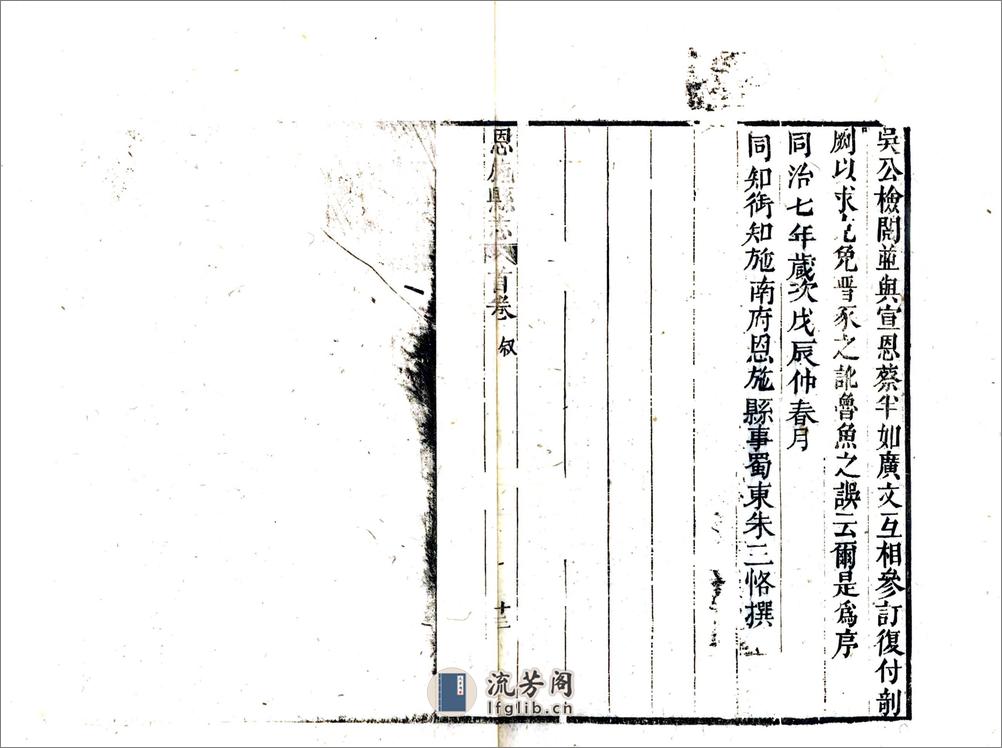 吳公檢閱並與宣恩蔡半如廣文互相參訂復付剞
劂以求克免晋豕之訛魯魚之誤云爾是爲序
同治七年歲次戊辰仲春月
同知銜知施南府恩施縣事蜀東朱三恪撰
恩施縣志 首卷 叙 十二
流芳阁
lfglib.cn